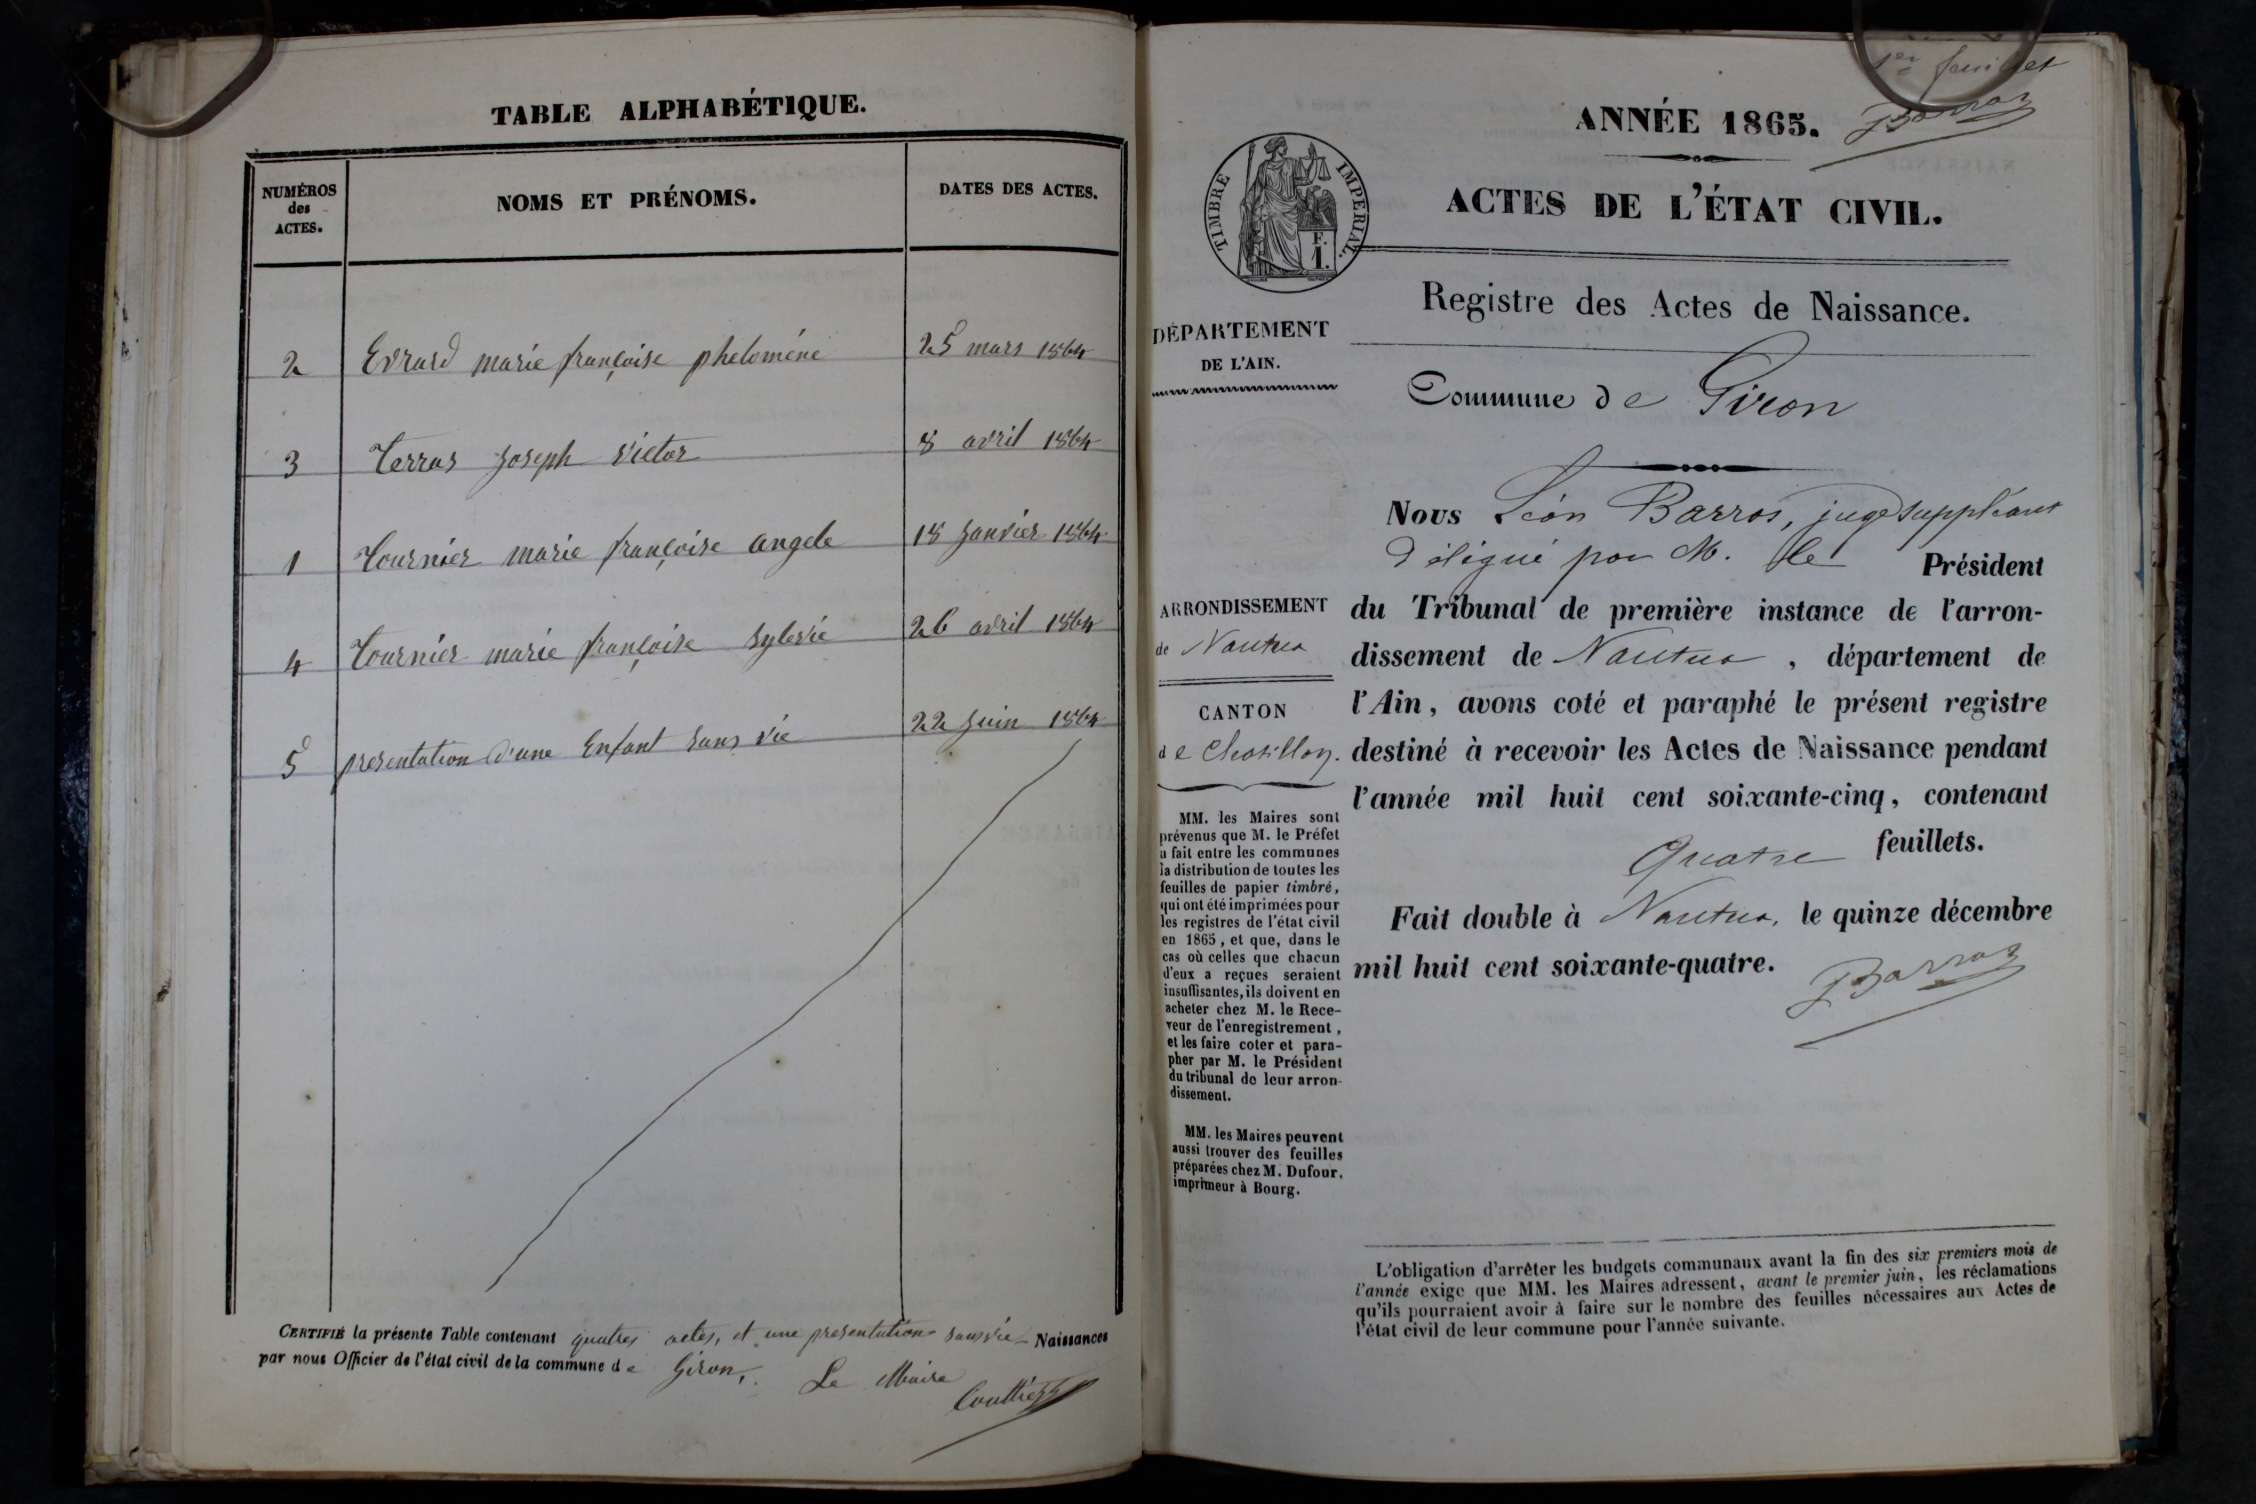 TABLE ALPHABÉTIQUE.
NUMÉROS des ACTES.
NOMS ET PRÉNOMS.
DATES DES ACTES.
2 Evrard marie françoise pheloméne 25 mars 1864
3 Terras Joseph Victor 8 avril 1864
1 Tournier marie françoise angele 18 Janvier 1864
4 Tournier marie françoise Sylvie 26 avril 1864
5 presentation d'une Enfant sans vie 22 Juin 1864
CERTIFIÉ la présente Table contenant quatres actes, et une presentation sans vie Naissances
par nous Officier de l'état civil de la commune de Giron, Le Maire
1er feuillet
Barros
ANNÉE 1865.
ACTES DE L'ÉTAT CIVIL.
TIMBRE IMPERIAL.
F.
1.
Registre des Actes de Naissance.
DÉPARTEMENT
DE L'AIN.
Commune de Giron
Nous Léon Barros, juge suppléant
délégué par M. le Président
du Tribunal de première instance de l'arron-
dissement de Nantua, département de
l'Ain, avons coté et paraphé le présent registre
destiné à recevoir les Actes de Naissance pendant
l'année mil huit cent soixante-cinq, contenant
quatre feuillets.
Fait double à Nantua, le quinze décembre
mil huit cent soixante-quatre.
Barros
ARRONDISSEMENT
de Nantua
CANTON
de Chatillon.
MM. les Maires sont
prévenus que M. le Préfet
a fait entre les communes
la distribution de toutes les
feuilles de papier timbré,
qui ont été imprimées pour
les registres de l'état civil
en 1865, et que, dans le
cas où celles que chacun
d'eux a reçues seraient
insuffisantes, ils doivent en
acheter chez M. le Rece-
veur de l'enregistrement,
et les faire coter et para-
pher par M. le Président
du tribunal de leur arron-
dissement.
MM. les Maires peuvent
aussi trouver des feuilles
préparées chez M. Dufour,
imprimeur à Bourg.
L'obligation d'arrêter les budgets communaux avant la fin des six premiers mois de
l'année exige que MM. les Maires adressent, avant le premier juin, les réclamations
qu'ils pourraient avoir à faire sur le nombre des feuilles nécessaires aux Actes de
l'état civil de leur commune pour l'année suivante.